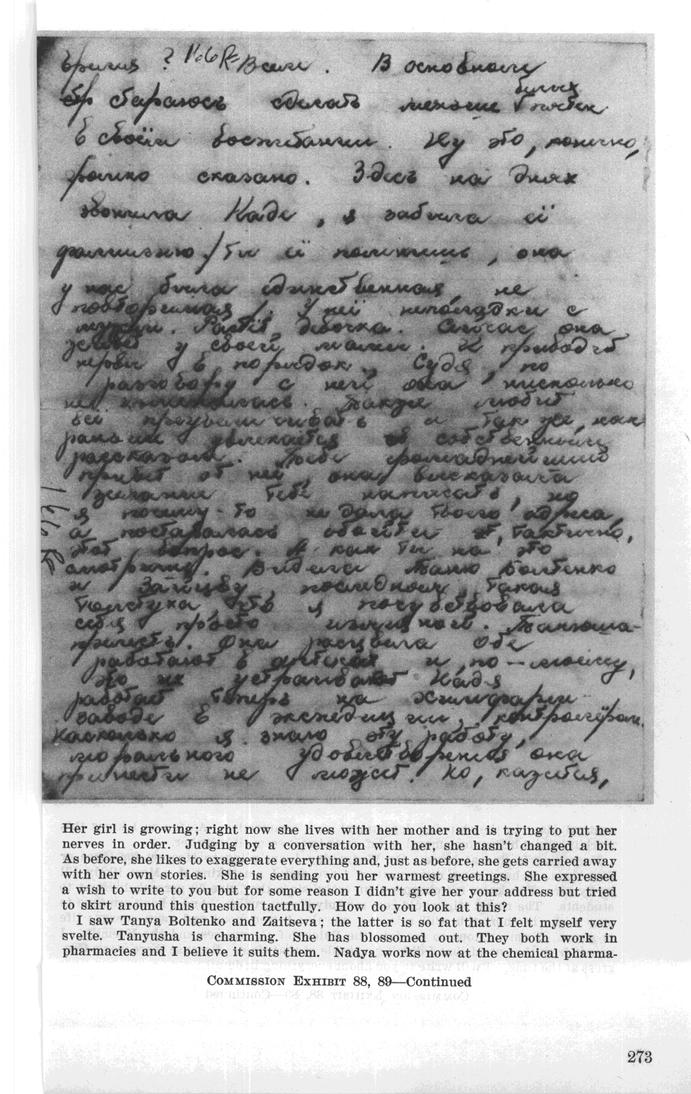 время ? Всем . В основном
стараюсь сделать меньше белых пятен
в своём воспитании. Ну это, конечно,
громко сказано. Здесь на днях
звонила Надя, я забыла её
фамилию /Ты её помнишь, она
у нас была единственная, не
повторимая/. У неё неполадки с
мужем. Растёт девочка. Сейчас она
живёт у своей мамы. И приводит
нервы в порядок. Судя, по
разговору с ней она нисколько
не изменилась. Также любит
всё преувеличивать и так же, как
раньше увлекается собственным
рассказом. Тебе громаднейший
привет от неё, она высказала
желание тебе написать, но
я почему-то не дала твоего адреса,
а постаралась обойти тактично,
этот вопрос. А как ты на это
смотришь. Видела Таню Болтенко
и Зайцеву, последняя такая
толстуха, что я почувствовала
себя просто изящной. Танюша-
прелесть. Она расцвела Обе
работают в аптеках и, по-моему,
это их устраивает Надя
работает теперь на химфарм-
заводе в экспедиции, контролёром.
Насколько я знаю эту работу,
морального удовлетворения она
принести не может. Но, кажется,
Her girl is growing; right now she lives with her mother and is trying to put her
nerves in order. Judging by a conversation with her, she hasn't changed a bit.
As before, she likes to exaggerate everything and, just as before, she gets carried away
with her own stories. She is sending you her warmest greetings. She expressed
a wish to write to you but for some reason I didn't give her your address but tried
to skirt around this question tactfully. How do you look at this?
I saw Tanya Boltenko and Zaitseva; the latter is so fat that I felt myself very
svelte. Tanyusha is charming. She has blossomed out. They both work in
pharmacies and I believe it suits them. Nadya works now at the chemical pharma-
COMMISSION EXHIBIT 88, 89—Continued
273